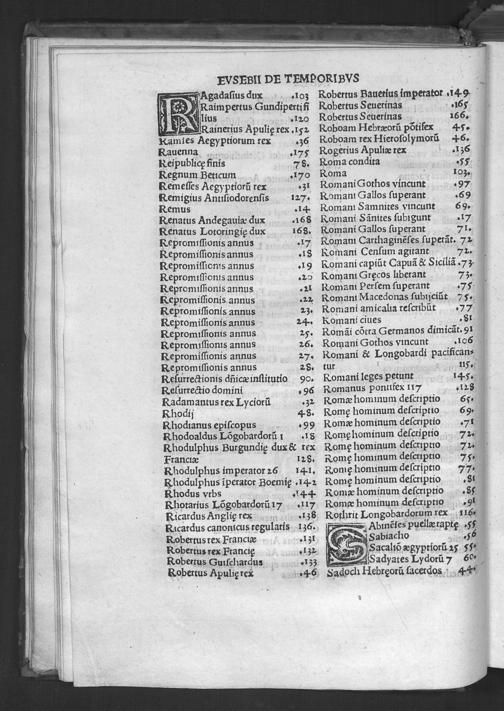 EVSEBII DE TEMPORIBVS
RAgadasius dux .103
Raimpertus Gundiperti fi
lius .120
Rainerius Apulię rex .152
Ramses Aegyptiorum rex .36
Rauenna .175
Reipublicę finis 78.
Regnum Beticum .170
Remesses Aegyptiorū rex .31
Remigius Antisiodorensis 127.
Remus .14
Renatus Andegauiæ dux .168
Renatus Lotoringię dux 168.
Repromissionis annus .17
Repromissionis annus .18
Repromissionis annus .19
Repromissionis annus .20
Repromissionis annus .21
Repromissionis annus .22
Repromissionis annus 23.
Repromissionis annus 24.
Repromissionis annus 25.
Repromissionis annus 26.
Repromissionis annus 27.
Repromissionis annus 28.
Resurrectionis dñicæ institutio 90.
Resurrectio domini .96
Radamantus rex Lyciorū .32
Rhodij 48.
Rhodianus episcopus .99
Rhodoaldus Lōgobardorū 1 .18
Rhodulphus Burgundię dux & rex
Franciæ 128.
Rhodulphus imperator 26 141.
Rhodulphus īperator Boemię .142
Rhodus vrbs .144
Rhotarius Lōgobardorū 17 .117
Ricardus Anglię rex .138
Ricardus canonicus regularis 136.
Robertus rex Franciæ .131
Robertus rex Francię .132
Robertus Guischardus .133
Robertus Apulię rex .46
Robertus Bauerius imperator .149
Robertus Seuerinas .165
Robertus Seuerinas 166.
Roboam Hebræorū pōtifex 45.
Roboam rex Hierosolymorū 46.
Rogerius Apuliæ rex .136
Roma condita .55
Roma 103.
Romani Gothos vincunt .97
Romani Gallos superant .69
Romani Samnites vincunt 69.
Romani Sānites subigunt .17
Romani Gallos superant 71.
Romani Carthaginēses superāt. 72
Romani Censum agitant 72.
Romani capiūt Capuā & Siciliā .73
Romani Gręcos liberant 73.
Romani Persem superant .75
Romani Macedonas subijciūt 75.
Romani amicalia rescribūt .77
Romani ciues .81
Romāi cōtra Germanos dimicāt. 91
Romani Gothos vincunt .106
Romani & Longobardi pacifican-
tur 115.
Romani leges petunt 145.
Romanus pontifex 117 .128
Romæ hominum descriptio 65.
Romę hominum descriptio 69.
Romæ hominum descriptio .71
Romę hominum descriptio 72.
Romę hominum descriptio 72.
Romę hominum descriptio 75.
Romę hominum descriptio 77.
Romę hominum descriptio .81
Romæ hominum descriptio .85
Romæ hominum descriptio .91
Rothrit Longobardorum rex 116.
SAbineses puellæ raptę .55
Sabiacho .56
Sacaliō ægyptiorū 25 55.
Sadyates Lydorū 7 60.
Sadoch Hebręorū sacerdos 44.